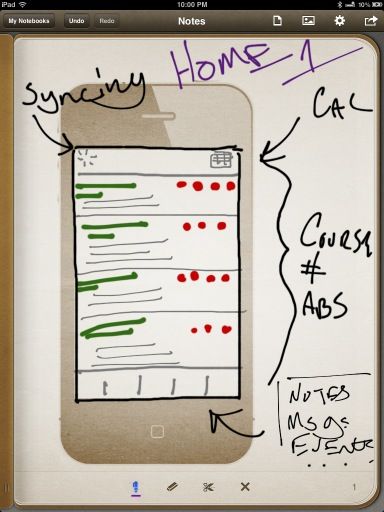 iPad
10:00 PM
10%
My Notebooks
Undo
Redo
Notes
HOME 1
Syncing
CAL
COURSE
#
ABS
NOTES
MSGS
EVENTS
....
1